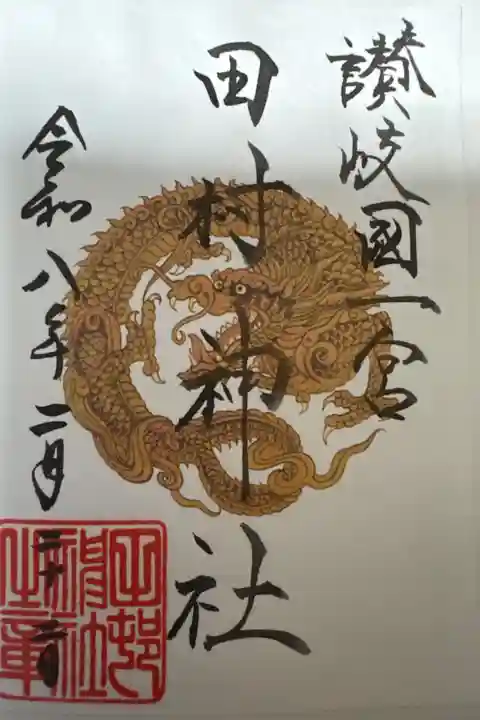 讃岐國一宮
田村神社
令和八年二月二十日
田邨神社之章